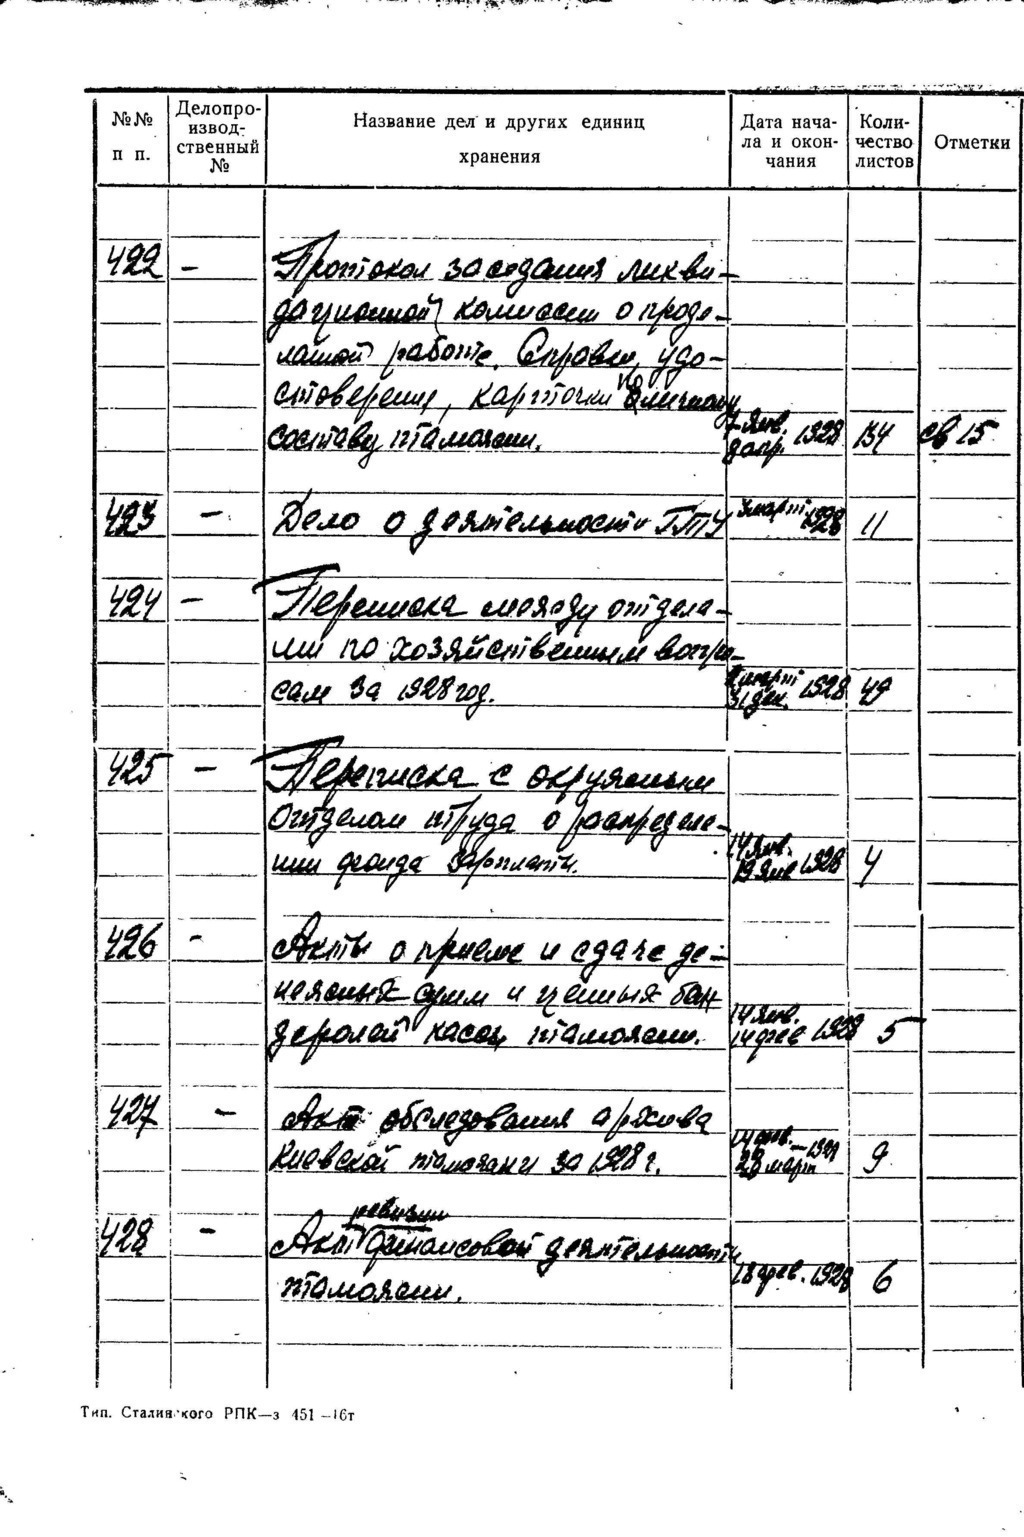 №№ п п.
Делопроизвод-
ственный №
Название дел и других единиц
хранения
Дата нача-
ла и окон-
чания
Коли-
чество
листов
Отметки
422 – Протокол заседания ликви-
дационной комиссии о проде-
ланной работе. Справки, удо-
стоверения, карточки по личному
составу таможни. 7 янв. 1928 134 св 15
423 – Дело о деятельности ГПУ 3 март 1928 11
424 – Переписка между отдела-
ми по хозяйственным вопро-
сам за 1928 год. март 31 дек. 1928 49
425 – Переписка с окружным
отделом труда о распределе-
нии фонда зарплаты. 14 янв. 19 янв 1928 4
426 – Акты о приеме и сдаче де-
нежных сумм и ценных бан-
деролей кассы таможни. 14 янв. 14 фев 1928 5
427 – Акт обследования архива
Киевской таможни за 1928 г. 28 март 9
428 – Акт ревизии финансовой деятельности
таможни. 18 фев. 1928 6
Тип. Сталинского РПК—з 451—16т